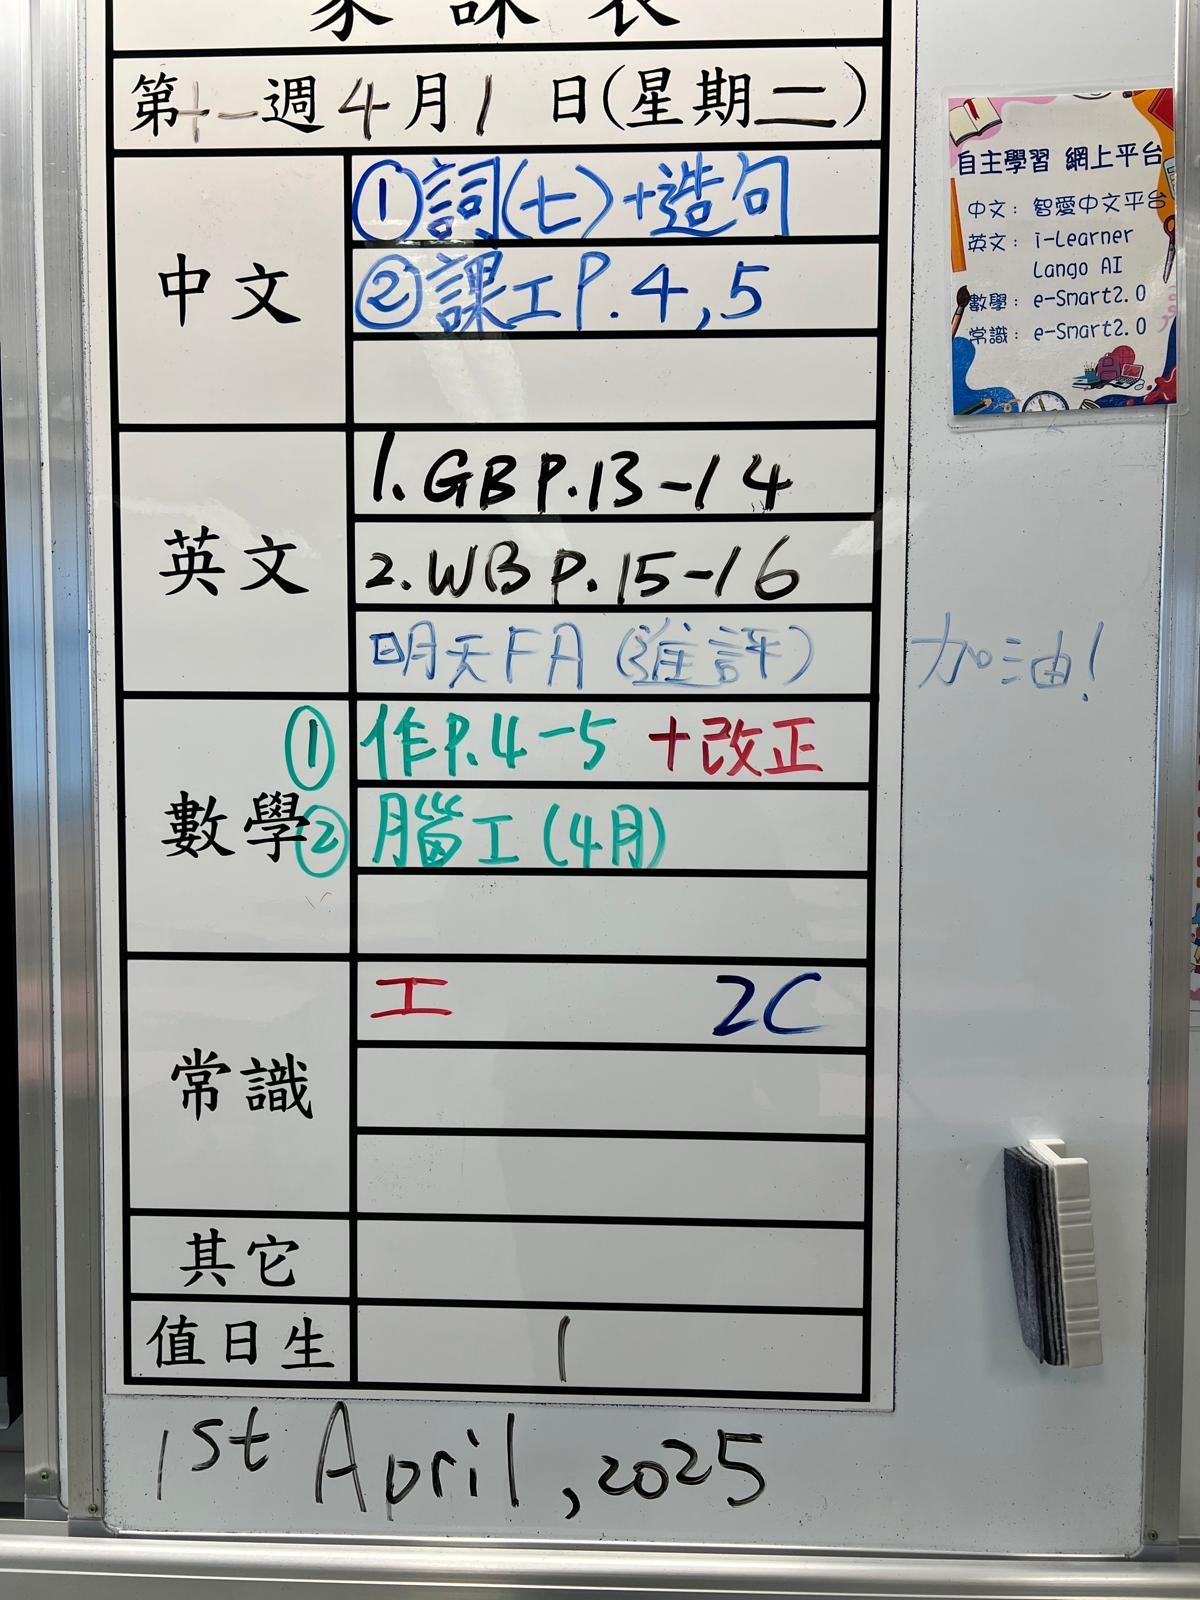 家課表
第十一週4月1日(星期二)
中文
①詞(七)+造句
②課工P.4,5
英文
1.GB P.13-14
2.WB P.15-16
明天FA(進評)
加油!
數學
①作P.4-5 +改正
②腦工(4月)
常識
工 2C
其它
值日生
1
1st April, 2025
自主學習 網上平台
中文: 智愛中文平台
英文: i-Learner
Lango AI
數學: e-Smart2.0
常識: e-Smart2.0